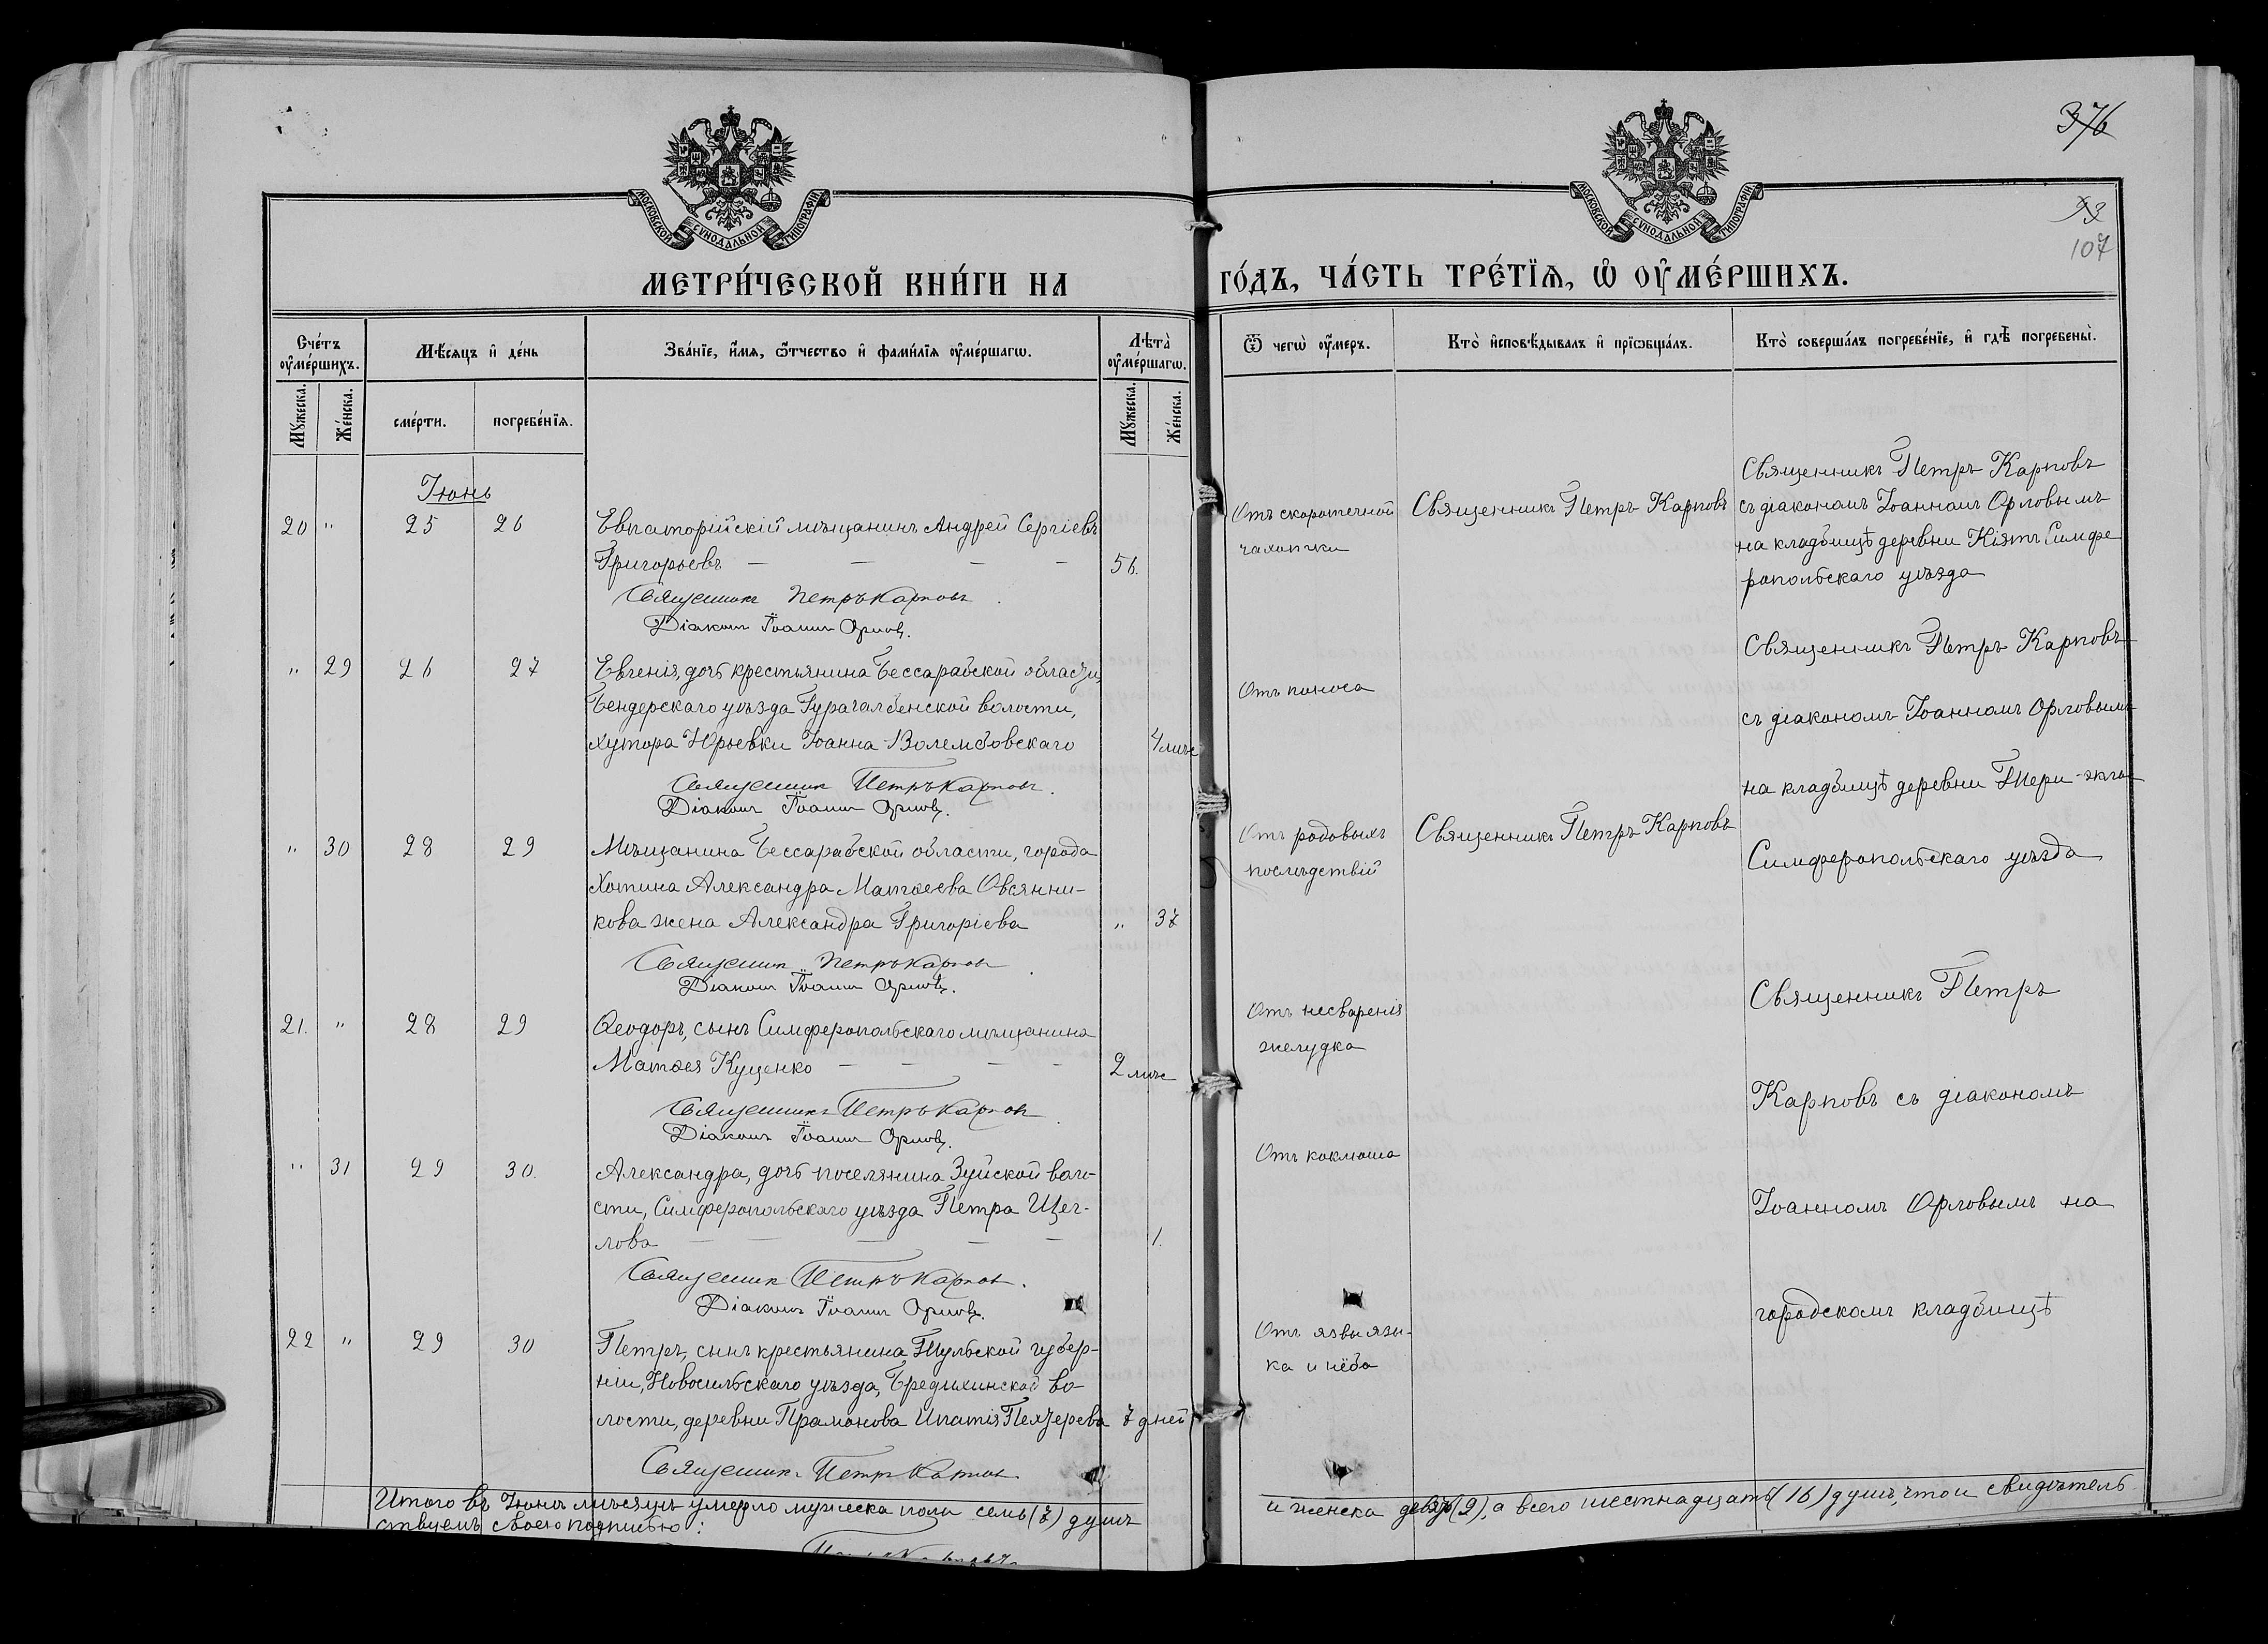 376
99
107
МОСКОВСКОЙ СѴНОДАЛЬНОЙ ТИПОГРАФІИ
МОСКОВСКОЙ СѴНОДАЛЬНОЙ ТИПОГРАФІИ
МЕТРИ́ЧЕСКОЙ КНИ́ГИ НА ГО́ДЪ, ЧА́СТЬ ТРЕ́ТІѦ, Ѡ҆ ОУ҆МЕ́РШИХЪ.
Сче́тъ оу҆ме́ршихъ.
Мѣ́сяцъ и҆ де́нь
Зва́нїе, и҆́мѧ, ѻ҆́тчество и҆ фами́лїѧ оу҆ме́ршагѡ.
Лѣ́та̀ оу҆ме́ршагѡ.
Ѿ чегѡ̀ оу҆́меръ.
Кто̀ и҆сповѣ́дывалъ и҆ прїѡбща́лъ.
Кто̀ соверша́лъ погребе́нїе, и҆ гдѣ̀ погребены̀.
Мꙋ́жеска.
Же́нска.
сме́рти.
погребе́нїѧ.
Мꙋ́жеска.
Же́нска.
Іюнь
20 " 25 26
Евпаторійскій мѣщанинъ Андрей Сергіевъ
Григорьевъ — — — — 56.
Священникъ Петръ Карповъ.
Діаконъ Іоаннъ Орловъ.
Отъ скоротечной
чахотки
Священникъ Петръ Карповъ
Священникъ Петръ Карповъ
съ діакономъ Іоанномъ Орловымъ
на кладбищѣ деревни Кіятъ Симфе
ропольскаго уѣзда
" 29 26 27
Евгенія, дочь крестьянина Бессарабской области,
Бендерскаго уѣзда Гурагалбенской волости,
хутора Юрьевки Іоанна Волембовскаго 4 мѣс
Священникъ Петръ Карповъ.
Діаконъ Іоаннъ Орловъ.
Отъ поноса
Священникъ Петръ Карповъ
съ діакономъ Іоанномъ Орловымъ
на кладбищѣ деревни
Симферопольскаго уѣзда
" 30 28 29
Мѣщанина Бессарабской области, города
Хотина Александра Матѳеева Овсянни-
кова жена Александра Григоріева " 37
Священникъ Петръ Карповъ.
Діаконъ Іоаннъ Орловъ.
Отъ родовыхъ
послѣдствій
Священникъ Петръ Карповъ
21. " 28 29
Ѳеодоръ, сынъ Симферопольскаго мѣщанина
Матѳея Куценко — — — — 2 мѣс
Священникъ Петръ Карповъ.
Діаконъ Іоаннъ Орловъ.
Отъ несваренія
желудка
Священникъ Петръ
Карповъ съ діакономъ
Іоанномъ Орловымъ на
городскомъ кладбищѣ
" 31 29 30.
Александра, дочь поселянина Зуйской воло-
сти, Симферопольскаго уѣзда Петра Щег-
лова — — — — — 1.
Священникъ Петръ Карповъ.
Діаконъ Іоаннъ Орловъ.
Отъ коклюша
22 " 29 30
Петръ, сынъ крестьянина Тульской губер-
ніи, Новосильскаго уѣзда, Бредихинской во-
лости, деревни Ипатія 7 дней
Священникъ Петръ Карповъ
Отъ язвы язы-
ка и нёба
Итого въ Іюнѣ мѣсяцѣ умерло мужеска пола семь (7) душъ и женска девять (9), а всего шестнадцать (16) душъ, что и свидѣтель
ствуемъ своею подписью: